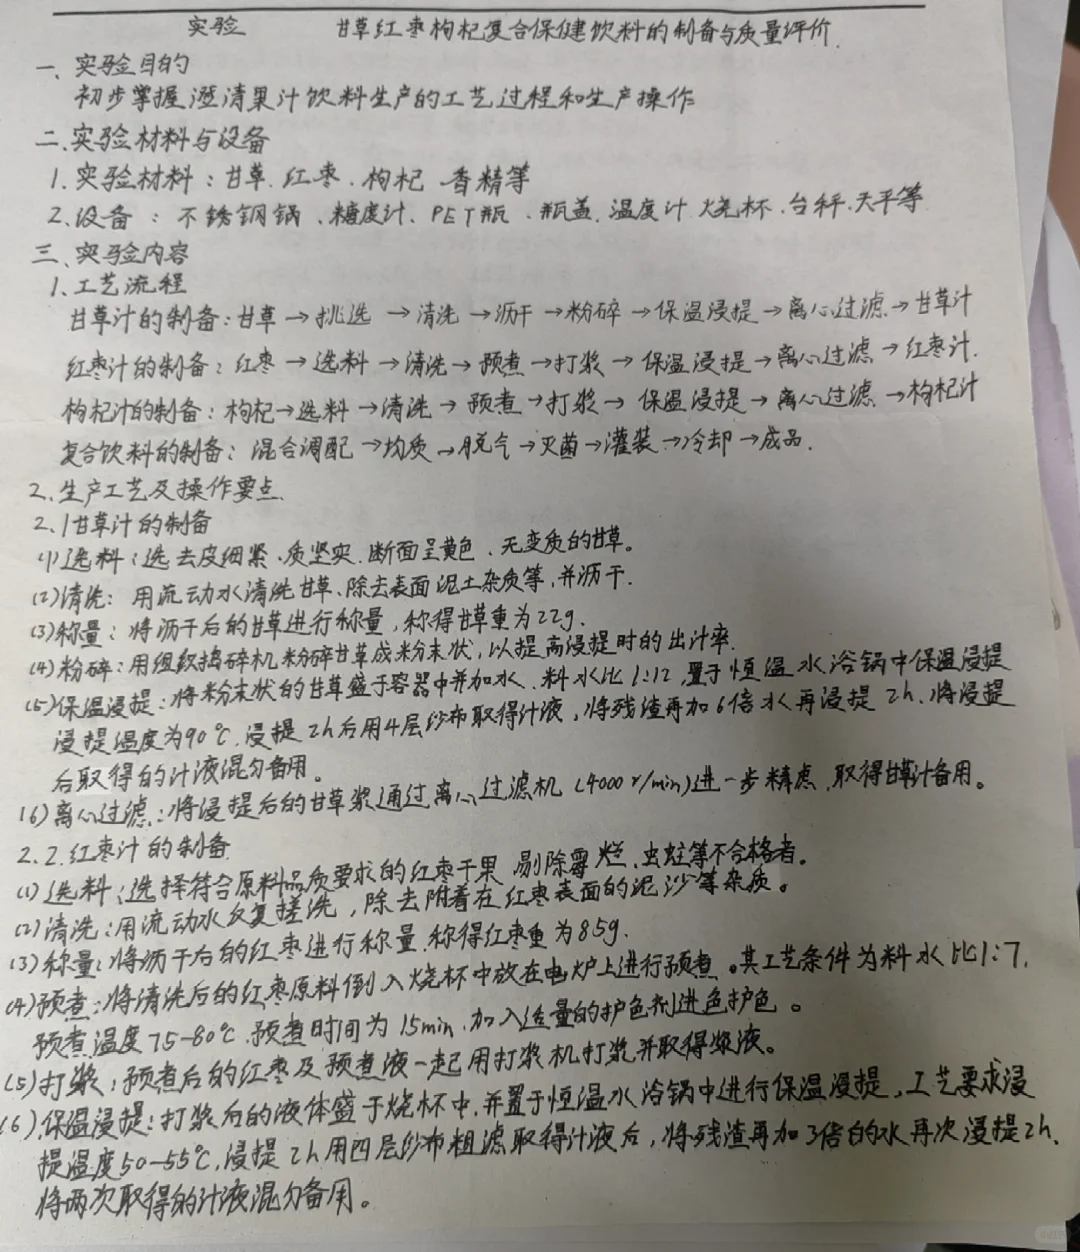 实验 甘草红枣枸杞复合保健饮料的制备与质量评价.
一、实验目的
初步掌握澄清果汁饮料生产的工艺过程和生产操作
二、实验材料与设备
1.实验材料:甘草、红枣、枸杞、香精等
2.设备:不锈钢锅、糖度计、PET瓶、瓶盖、温度计、烧杯、台秤、天平等
三、实验内容
1、工艺流程
甘草汁的制备:甘草→挑选→清洗→沥干→粉碎→保温浸提→离心过滤→甘草汁
红枣汁的制备:红枣→选料→清洗→预煮→打浆→保温浸提→离心过滤→红枣汁.
枸杞汁的制备:枸杞→选料→清洗→预煮→打浆→保温浸提→离心过滤→枸杞汁
复合饮料的制备:混合调配→均质→脱气→灭菌→灌装→冷却→成品.
2、生产工艺及操作要点.
2.1甘草汁的制备
(1)选料:选去皮细紧、质坚实、断面呈黄色、无变质的甘草。
(2)清洗:用流动水清洗甘草、除去表面泥土杂质等,并沥干.
(3)称量:将沥干后的甘草进行称量,称得甘草重为22g.
(4)粉碎:用组织捣碎机粉碎甘草成粉末状,以提高浸提时的出汁率.
(5)保温浸提:将粉末状的甘草盛于容器中并加水、料水比1:12,置于恒温水浴锅中保温浸提
浸提温度为90℃.浸提2h后用4层纱布取得汁液,将残渣再加6倍水再浸提2h.将浸提
后取得的汁液混匀备用。
(6)离心过滤:将浸提后的甘草浆通过离心过滤机(4000r/min)进一步精虑,取得甘草汁备用。
2.2.红枣汁的制备
(1)选料:选择符合原料品质要求的红枣干果 剔除霉烂、虫蛀等不合格者。
(2)清洗:用流动水反复搓洗,除去附着在红枣表面的泥沙等杂质。
(3)称量:将沥干后的红枣进行称量,称得红枣重为85g.
(4)预煮:将清洗后的红枣原料倒入烧杯中放在电炉上进行预煮。其工艺条件为料水比1:7,
预煮温度75-80℃.预煮时间为15min.加入适量的护色剂进色护色。
(5)打浆:预煮后的红枣及预煮液一起用打浆机打浆并取得浆液。
(6).保温浸提:打浆后的液体盛于烧杯中.并置于恒温水浴锅中进行保温浸提,工艺要求浸
提温度50-55℃,浸提2h用四层纱布粗滤取得汁液后,将残渣再加3倍的水再次浸提2h.
将两次取得的汁液混匀备用。